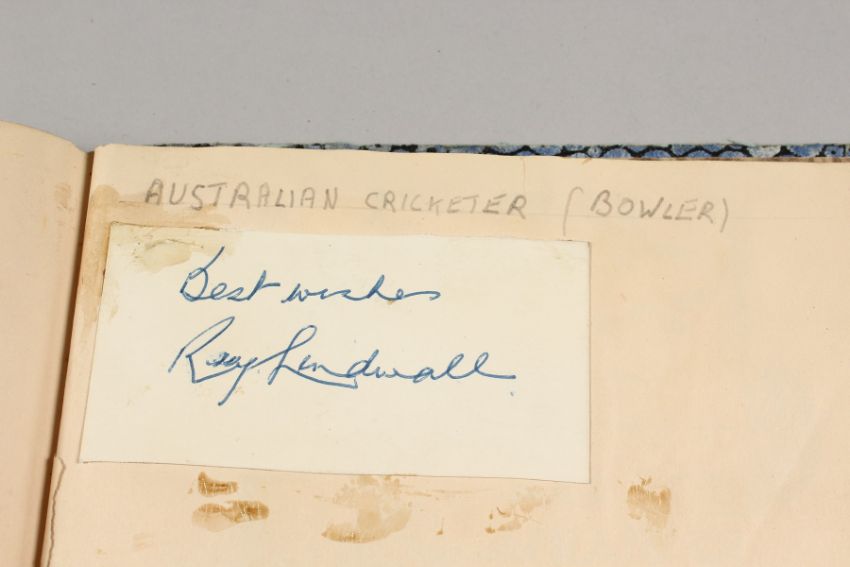 AUSTRALIAN CRICKETER (BOWLER)
Best wishes
Ray Lindwall